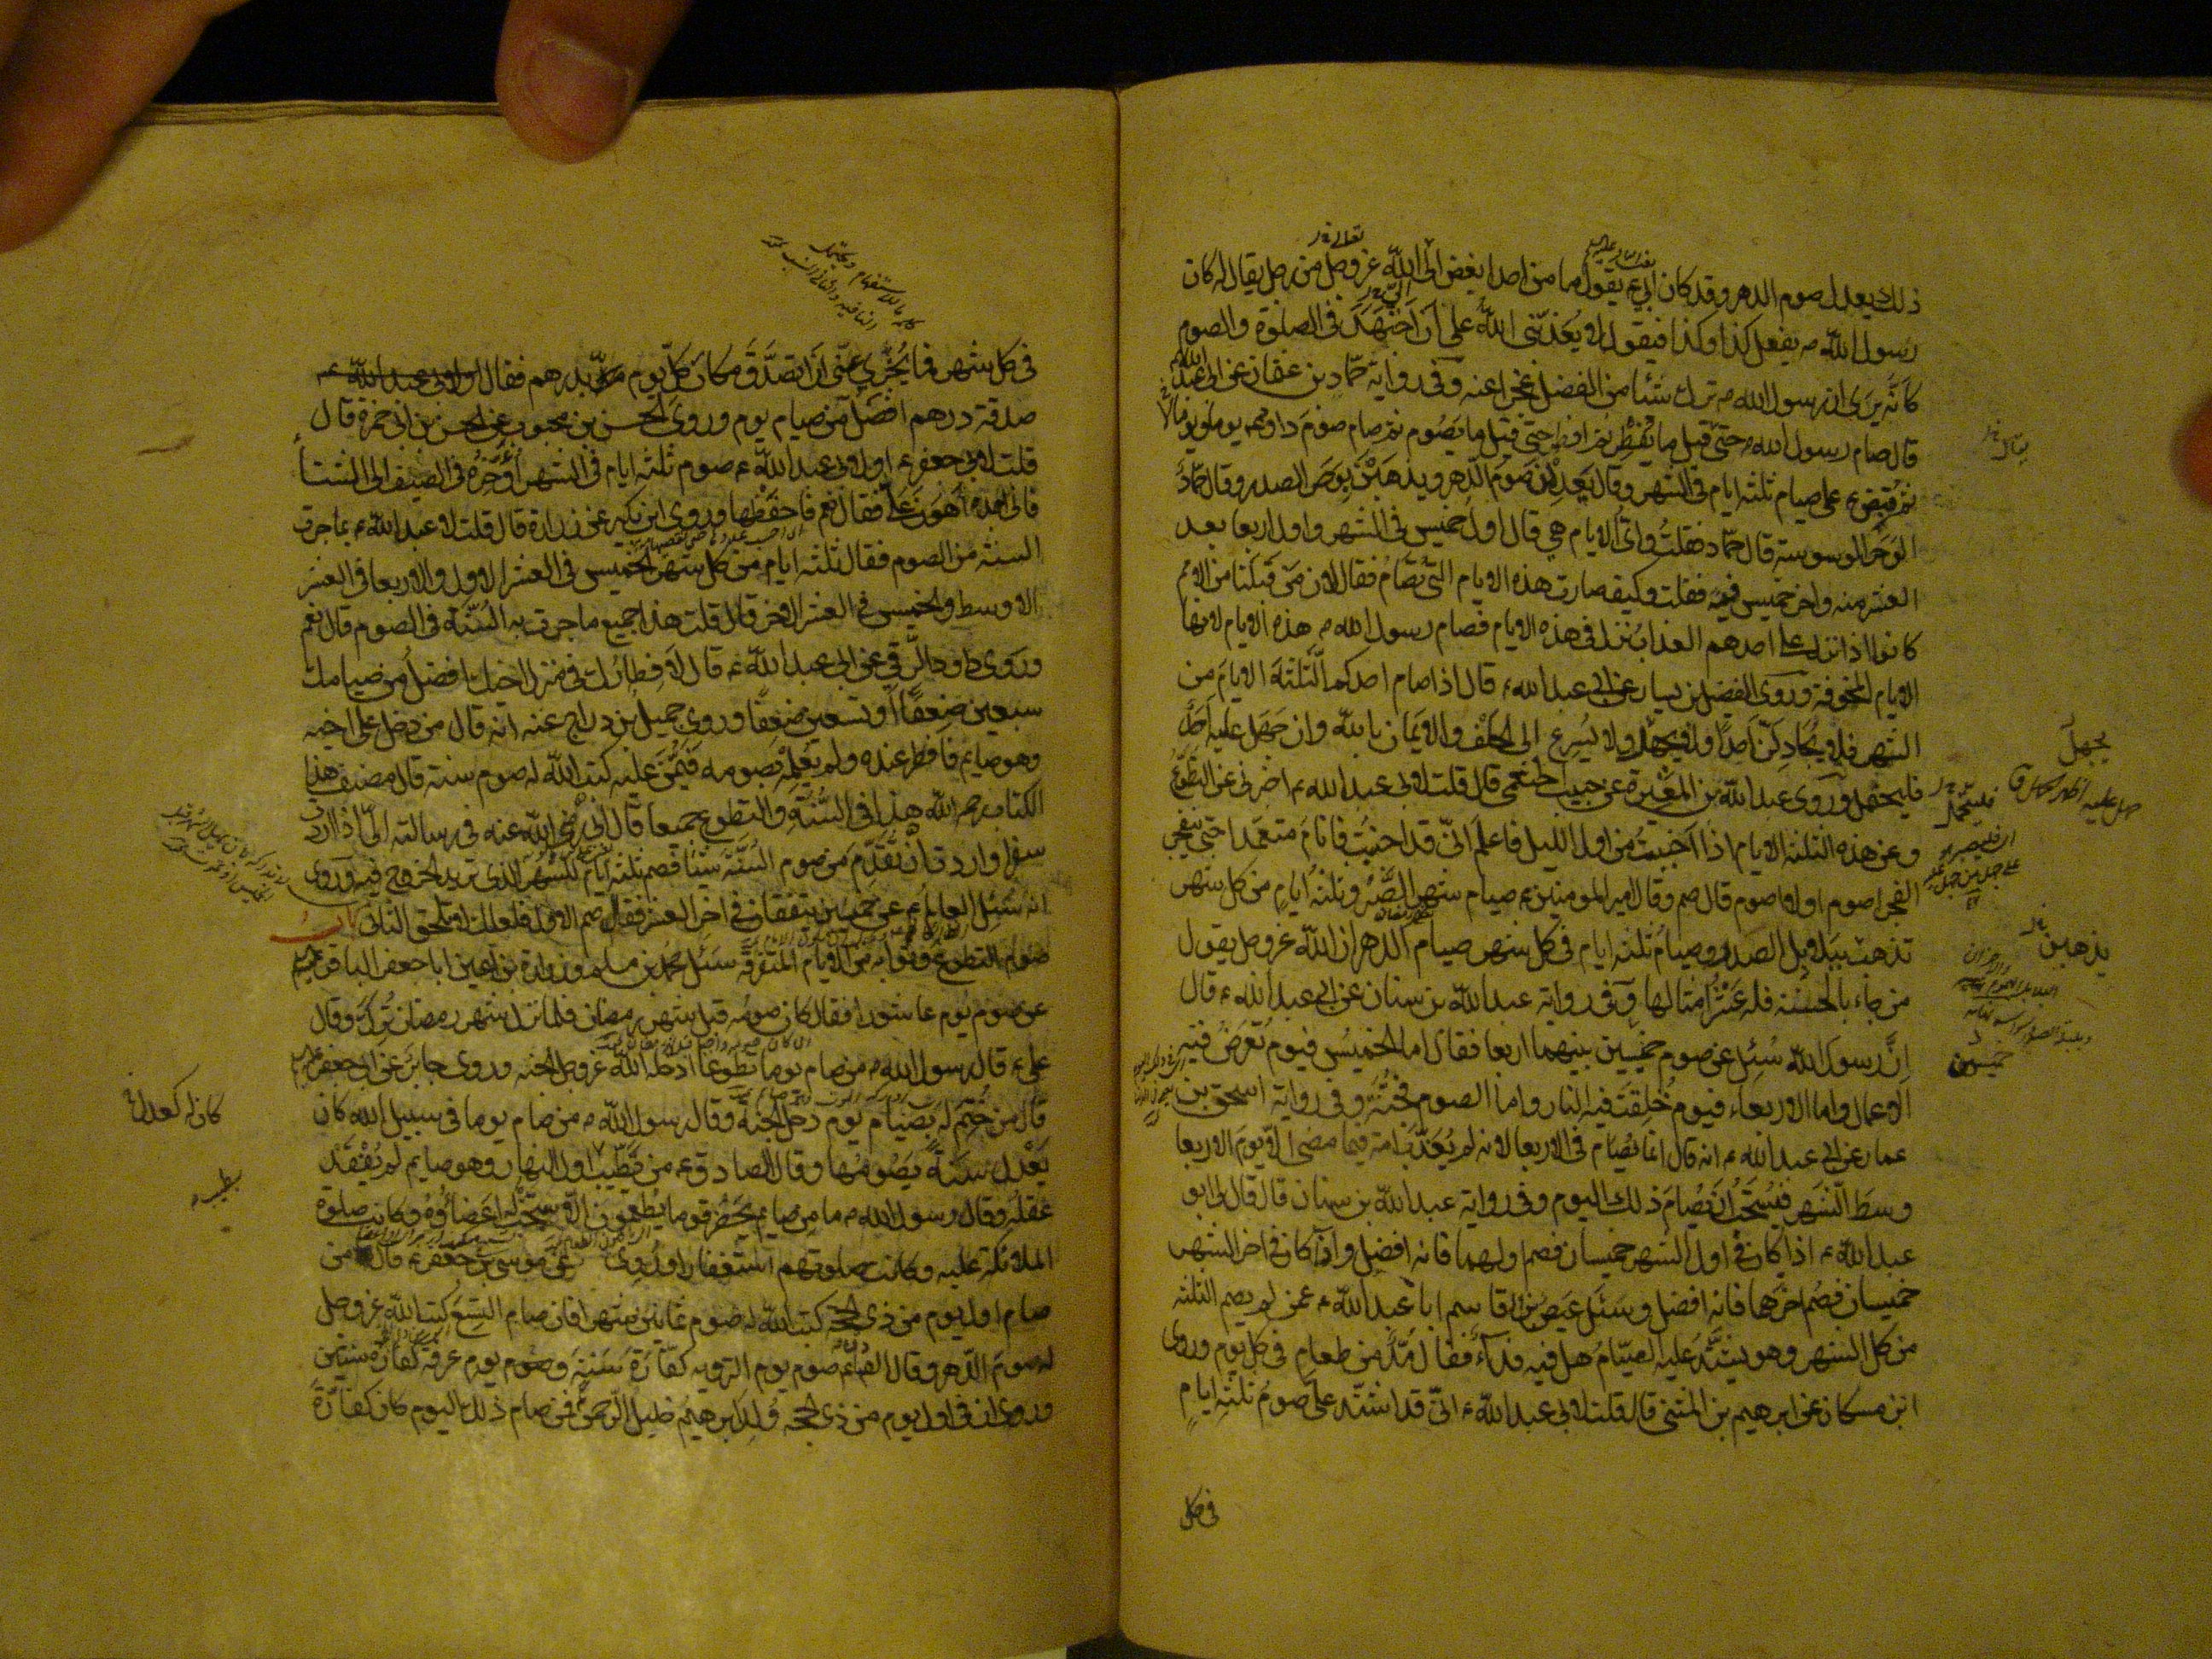 ذلك يعدل صوم الدهر وقد كان ابي ع يقول ما من احد ابغض الى الله عز وجل من رجل يقال له كان
رسول الله ص يفعل كذا وكذا فيقول لا يعذبني الله على ان اجتهد في الصلوة والصوم
كانه يرى ان رسول الله ص ترك شيئا من الفضل عجزا عنه وفي رواية حماد بن عثمان عن ابي عبد الله ع
قال صام رسول الله ص حتى قيل ما يفطر ثم افطر حتى قيل ما يصوم ثم صام صوم داود ع يوما ويوما لا
ثم قبض ع على صيام ثلثة ايام في الشهر وقال يعدلن صوم الدهر ويذهبن بوحر الصدر وقال حماد
الوحر الوسوسة قال حماد فقلت واي الايام هي قال اول خميس في الشهر واول اربعا بعد
العشر منه واخر خميس فيه فقلت وكيف صارت هذه الايام التي تصام فقال لان من قبلنا من الامم
كانوا اذا نزل على احدهم العذاب نزل في هذه الايام فصام رسول الله ص هذه الايام لانها
الايام المخوفة وروى الفضيل بن يسار عن ابي عبد الله ع قال اذا صام احدكم الثلثة الايام من
الشهر فلا يجادلن احدا ولا يجهل ولا يسرع الى الحلف والايمان بالله وان جهل عليه احد
فليحتمل وروى عبد الله بن المغيرة عن حبيب الخثعمي قال قلت لابي عبد الله ع اخبرني عن التطوع
وعن هذه الثلثة الايام اذا اجنبت من اول الليل فاعلم اني قد اجنبت فانام متعمدا حتى ينفجر
الفجر اصوم او لا اصوم قال صم وقال امير المومنين ع صيام شهر الصبر وثلثة ايام من كل شهر
تذهب ببلابل الصدر وصيام ثلثة ايام في كل شهر صيام الدهر ان الله عز وجل يقول
من جاء بالحسنة فله عشر امثالها وفي رواية عبد الله بن سنان عن ابي عبد الله ع قال
ان رسول الله سئل عن صوم خميسين بينهما اربعا فقال اما الخميس فيوم تعرض فيه
الاعمال واما الاربعاء فيوم خلقت فيه النار واما الصوم فجنة وفي رواية اسحق بن
عمار عن ابي عبد الله ع انه قال انما يصام في الاربعا لانه لم يعذب امة فيما مضى الا يوم الاربعا
وسط الشهر فيستحب ان يصام ذلك اليوم وفي رواية عبد الله بن سنان قال قال لي ابو
عبد الله ع اذا كان في اول الشهر خميسان فصم اولهما فانه افضل واذا كان في اخر الشهر
خميسان فصم اخرهما فانه افضل وسئل عيص بن القاسم ابا عبد الله ع عمن لم يصم الثلثة
من كل الشهر وهو يشتد عليه الصيام هل فيه فداء فقال مد من طعام في كل يوم وروى
ابن مسكان عن ابرهيم بن المثنى قال قلت لابي عبد الله ع اني قد اشتد علي صوم ثلثة ايام
في كل
يجهل
يذهبن
خميسين
في كل شهر فما يجزي عني ان اتصدق مكان كل يوم بدرهم فقال
صدقة درهم افضل من صيام يوم وروى الحسن بن محبوب عن الحسن بن ابي حمزة قال
قلت لابي جعفر ع او لابي عبد الله ع صوم ثلثة ايام في الشهر اؤخره في الصيف الى الشتا
فاني اجده اهون علي فقال نعم فاحفظها وروى ابن بكير عن زرارة قال قلت لابي عبد الله ع بما جرت
السنة من الصوم فقال ثلثة ايام من كل شهر الخميس في العشر الاول والاربعا في العشر
الاوسط والخميس في العشر الاخر قال قلت هذا جميع ما جرت به السنة في الصوم قال نعم
وروى داود الرقي عن ابي عبد الله ع قال لافطارك في منزل اخيك افضل من صيامك
سبعين ضعفا او تسعين ضعفا وروى جميل بن دراج عنه انه قال من دخل على اخيه
وهو صايم فافطر عنده ولم يعلمه بصومه فيمن عليه كتب الله له صوم سنة قال مصنف هذا
الكتاب رحمه الله هذا في السنة والتطوع جميعا قال ابي رضي الله عنه في رسالته الي اذا اردت
سفرا واردت ان تقدم من صوم السنة شيئا فصم ثلثة ايام للشهر الذي تريد الخروج فيه وروى
انه سئل العالم ع عن خميسين يتفقان في اخر العشر فقال صم الاول فلعلك لا تلحق الثاني باب
صوم التطوع وثوابه من الايام المتفرقة سئل محمد بن مسلم وزرارة بن اعين ابا جعفر الباقر
عن صوم يوم عاشورا فقال كان صومه قبل شهر رمضان فلما نزل شهر رمضان ترك وقال
علي ع قال رسول الله ص من صام يوما تطوعا ادخله الله عز وجل الجنة وروى جابر عن ابي جعفر
قال من ختم له بصيام يوم دخل الجنة وقال رسول الله ص من صام يوما في سبيل الله كان
يعدل سنة يصومها وقال الصادق ع من تطيب اول النهار وهو صايم لم يفقد
عقله وقال رسول الله ص ما من صايم يحضر قوما يطعمون الا سبحت له اعضاؤه وكانت صلوة
الملائكة عليه وكانت صلوتهم استغفارا وروى عن موسى بن جعفر ع قال من
صام اول يوم من ذي الحجة كتب الله له صوم ثمانين شهرا فان صام التسع كتب الله عز وجل
له صوم الدهر وقال الصادق ع صوم يوم التروية كفارة سنة وصوم يوم عرفة كفارة سنتين
وروى ان في اول يوم من ذي الحجة ولد ابرهيم خليل الرحمن ع فمن صام ذلك اليوم كان كفارة
كان له كعدل